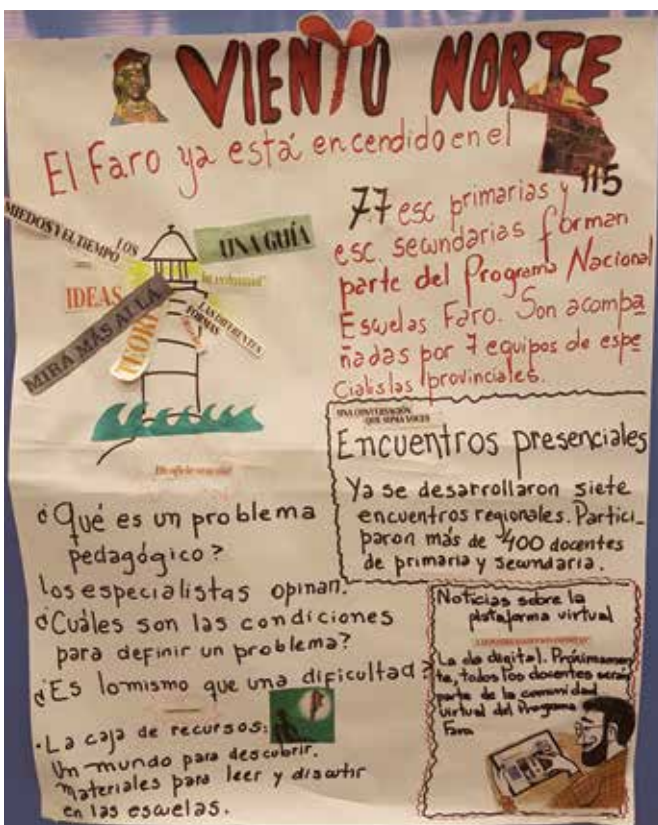 VIENTO NORTE
El Faro ya está encendido en el
MIEDOS Y EL TIEMPO
LOS
UNA GUÍA
IDEAS
MIRA MÁS ALLÁ
TEORÍ
LAS DIFERENTES
FORMAS
77 esc primarias y 115
esc. secundarias forman
parte del Programa Nacional
Escuelas Faro. Son acompa
ñadas por 7 equipos de espe
cialistas provinciales.
UNA CONVERSACIÓN
QUE SUMA VOCES
Encuentros presenciales
Ya se desarrollaron siete
encuentros regionales. Partici_
paron más de 400 docentes
de primaria y secundaria.
¿Qué es un problema
pedagógico?
Los especialistas opinan.
¿Cuáles son las condiciones
para definir un problema?
¿Es lo mismo que una dificultad?
· La caja de recursos:
Un mundo para descubrir.
Materiales para leer y discutir
en las escuelas.
Noticias sobre la
plataforma virtual
La ola digital. Próximamen
te, todos los docentes serán
parte de la comunidad
virtual del Programa
Faro